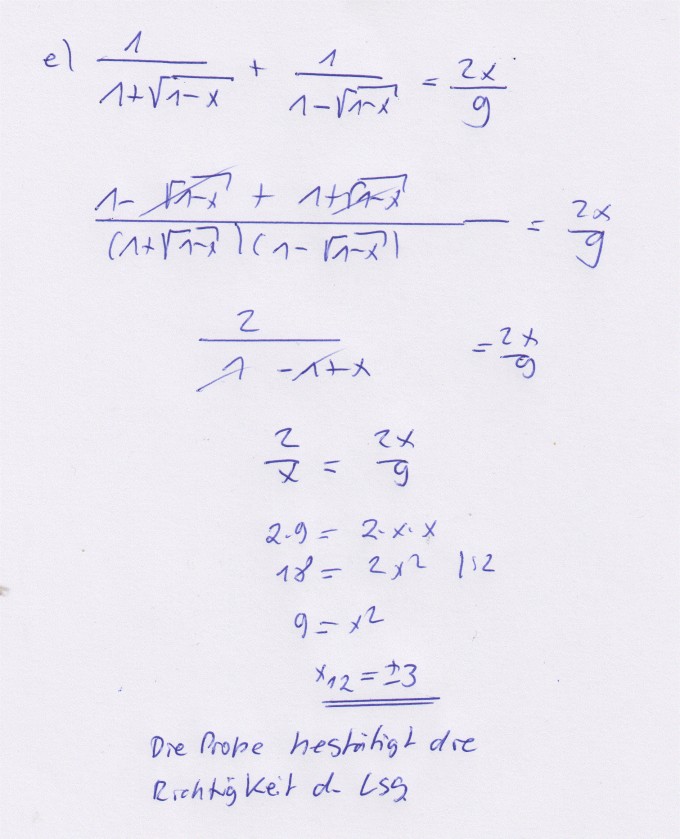 e) 1/(1+√(1-x)) + 1/(1-√(1-x)) = 2x/9
(1-√(1-x) + 1+√(1-x))/((1+√(1-x))(1-√(1-x))) = 2x/9
2/(1-1+x) = 2x/9
2/x = 2x/9
2·9 = 2·x·x
18 = 2x² |:2
9 = x²
x₁₂ = ±3
Die Probe bestätigt die
Richtigkeit d. Lsg